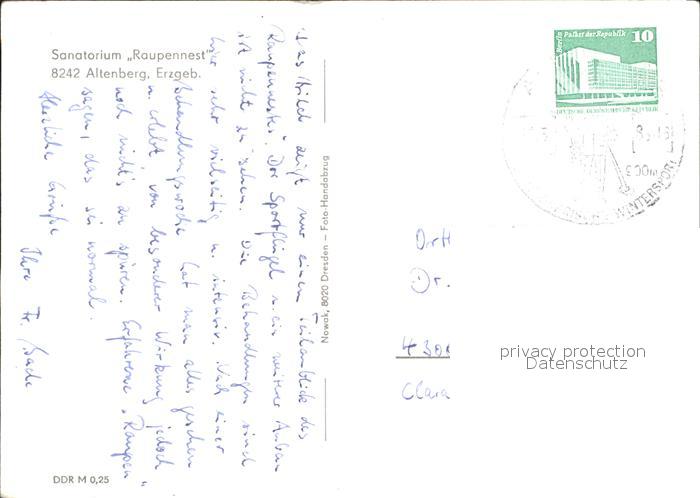 Sanatorium „Raupennest"
8242 Altenberg, Erzgeb.
Das Bild zeigt nur einen Teilanblick des
„Raupennestes". Der Sportflügel u. ein weiterer Anbau
ist nicht zu sehen. Die Behandlungen sind
hier sehr vielseitig u. intensiv. Nach einer
Behandlungswoche hat man alles gesehen
u. erlebt von besonderer Wirkung jedoch
noch nichts zu spüren. Erfahrene „Raupen"
sagen, das sei normal.
Herzliche Grüße
Ihre Fr.
Nowak, 8020 Dresden – Foto-Handabzug
DDR M 0,25
Berlin Palast der Republik
10
DEUTSCHE DEMOKRATISCHE REPUBLIK
900m
WINTERSPORT
Dr.
Clara
privacy protection
Datenschutz